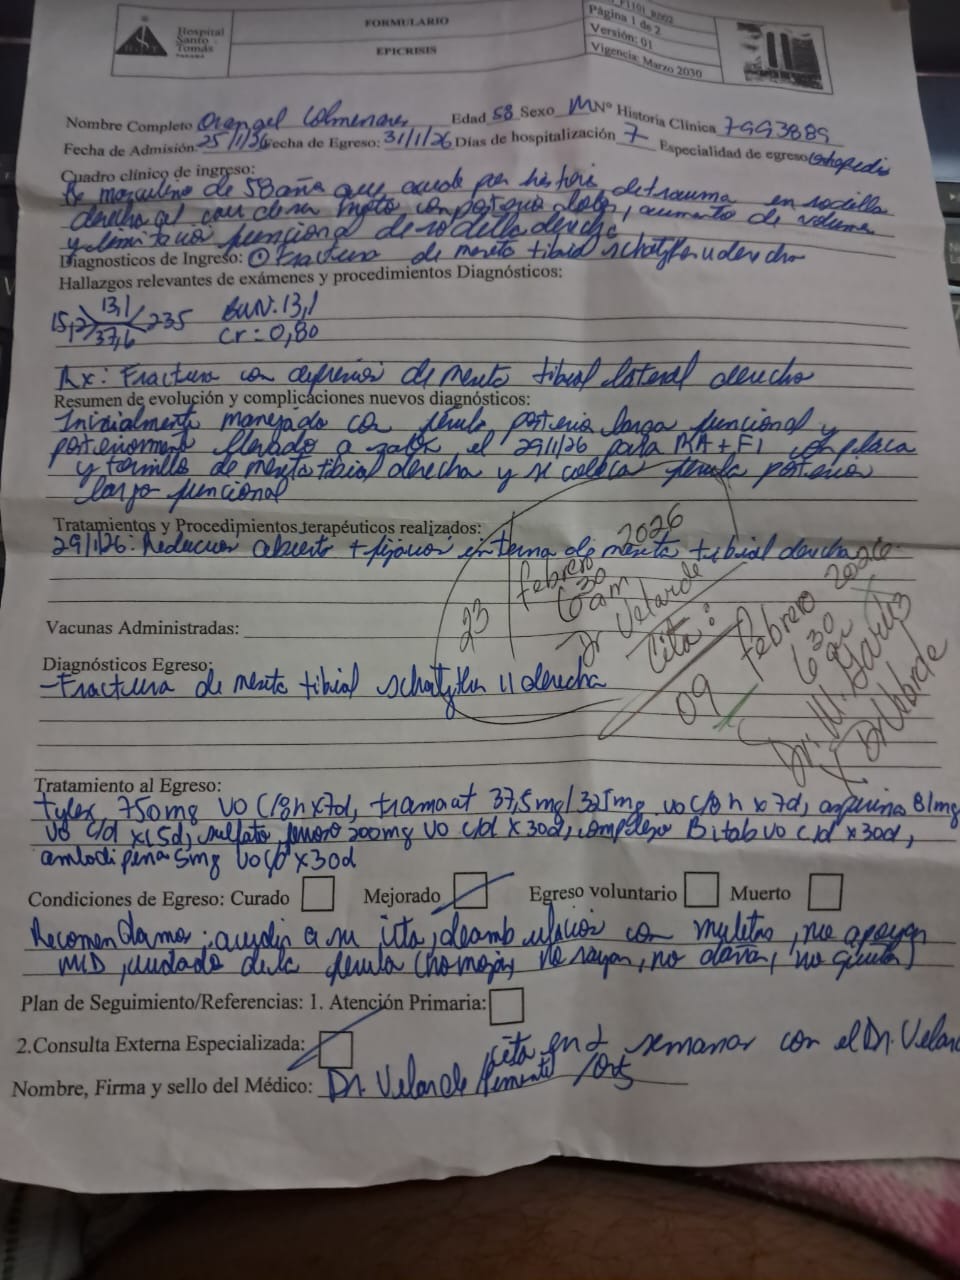 Hospital
Santo
Tomás
PANAMÁ
FORMULARIO
EPICRISIS
Página 1 de 2
Versión: 01
Vigencia: Marzo 2030
Nombre Completo Orangel Colmenares Edad 58 Sexo M N° Historia Clínica 7993889
Fecha de Admisión: 25/1/26 Fecha de Egreso: 31/1/26 Días de hospitalización 7 Especialidad de egreso Ortopedia
Cuadro clínico de ingreso:
de 58 año que acude por historia de trauma en rodilla
derecha al caer de su moto con posterior dolor, aumento de volumen
y limitación funcional de rodilla derecha
Diagnosticos de Ingreso: ① Fractura de meseta tibial schatzker II derecha
Hallazgos relevantes de exámenes y procedimientos Diagnósticos:
15,2 13,1 235 BUN: 13,1
37,6 Cr = 0,80
Rx: Fractura con depresión de meseta tibial lateral derecha
Resumen de evolución y complicaciones nuevos diagnósticos:
Inicialmente manejado con ferula posterior larga funcional y
posteriormente llevado a salón el 29/1/26 para RA + FI con placa
y tornillo de meseta tibial derecha y se coloca ferula posterior
larga funcional
Tratamientos y Procedimientos terapéuticos realizados:
29/1/26: Reducción abierta + fijación interna de meseta tibial derecha
23 febrero 2026
6 30 am
Dr Velarde
Cita:
09 febrero 2026
6 30 am
Dr. M.
Y Dr Velarde
Vacunas Administradas:
Diagnósticos Egreso:
- Fractura de meseta tibial schatzker II derecha
Tratamiento al Egreso:
tylex 750mg VO c/8h x7d, tramacet 37,5mg/325mg VO c/8h x 7d, aspirina 81mg
VO c/d x15d, sulfato ferroso 300mg VO c/d x 30d, complejo B 1tab VO c/d x 30d,
amlodipena 5mg VO c/d x30d
Condiciones de Egreso: Curado Mejorado Egreso voluntario Muerto
Recomendamos: acudir a su cita, deambulación con muletas, no apoyar
MID, cuidado de la ferula (no mojar, no rayar, no dañar, no quitar)
Plan de Seguimiento/Referencias: 1. Atención Primaria:
2.Consulta Externa Especializada:
cita en 2 semanas con el Dr. Velarde
Nombre, Firma y sello del Médico: Dr. Velarde / Pimentel / Ort